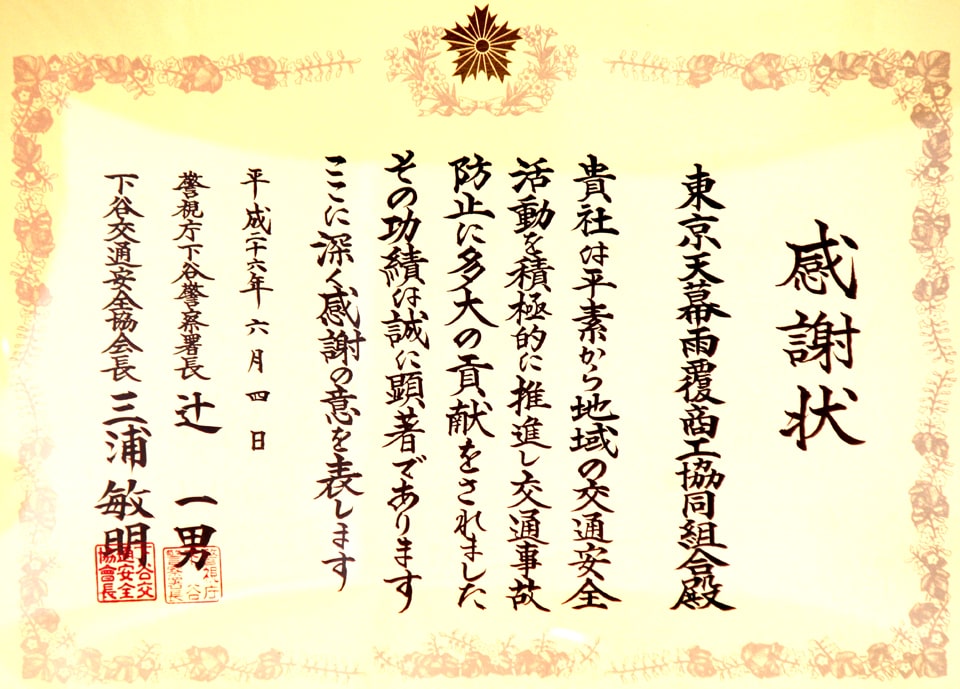 感謝状
東京天幕雨覆商工協同組合殿
貴社は平素から地域の交通安全
活動を積極的に推進し交通事故
防止に多大の貢献をされました
その功績は誠に顕著であります
ここに深く感謝の意を表します
平成二十六年六月四日
警視庁下谷警察署長 辻 一男
下谷交通安全協会長 三浦敏明
下谷交
通安全
協會長